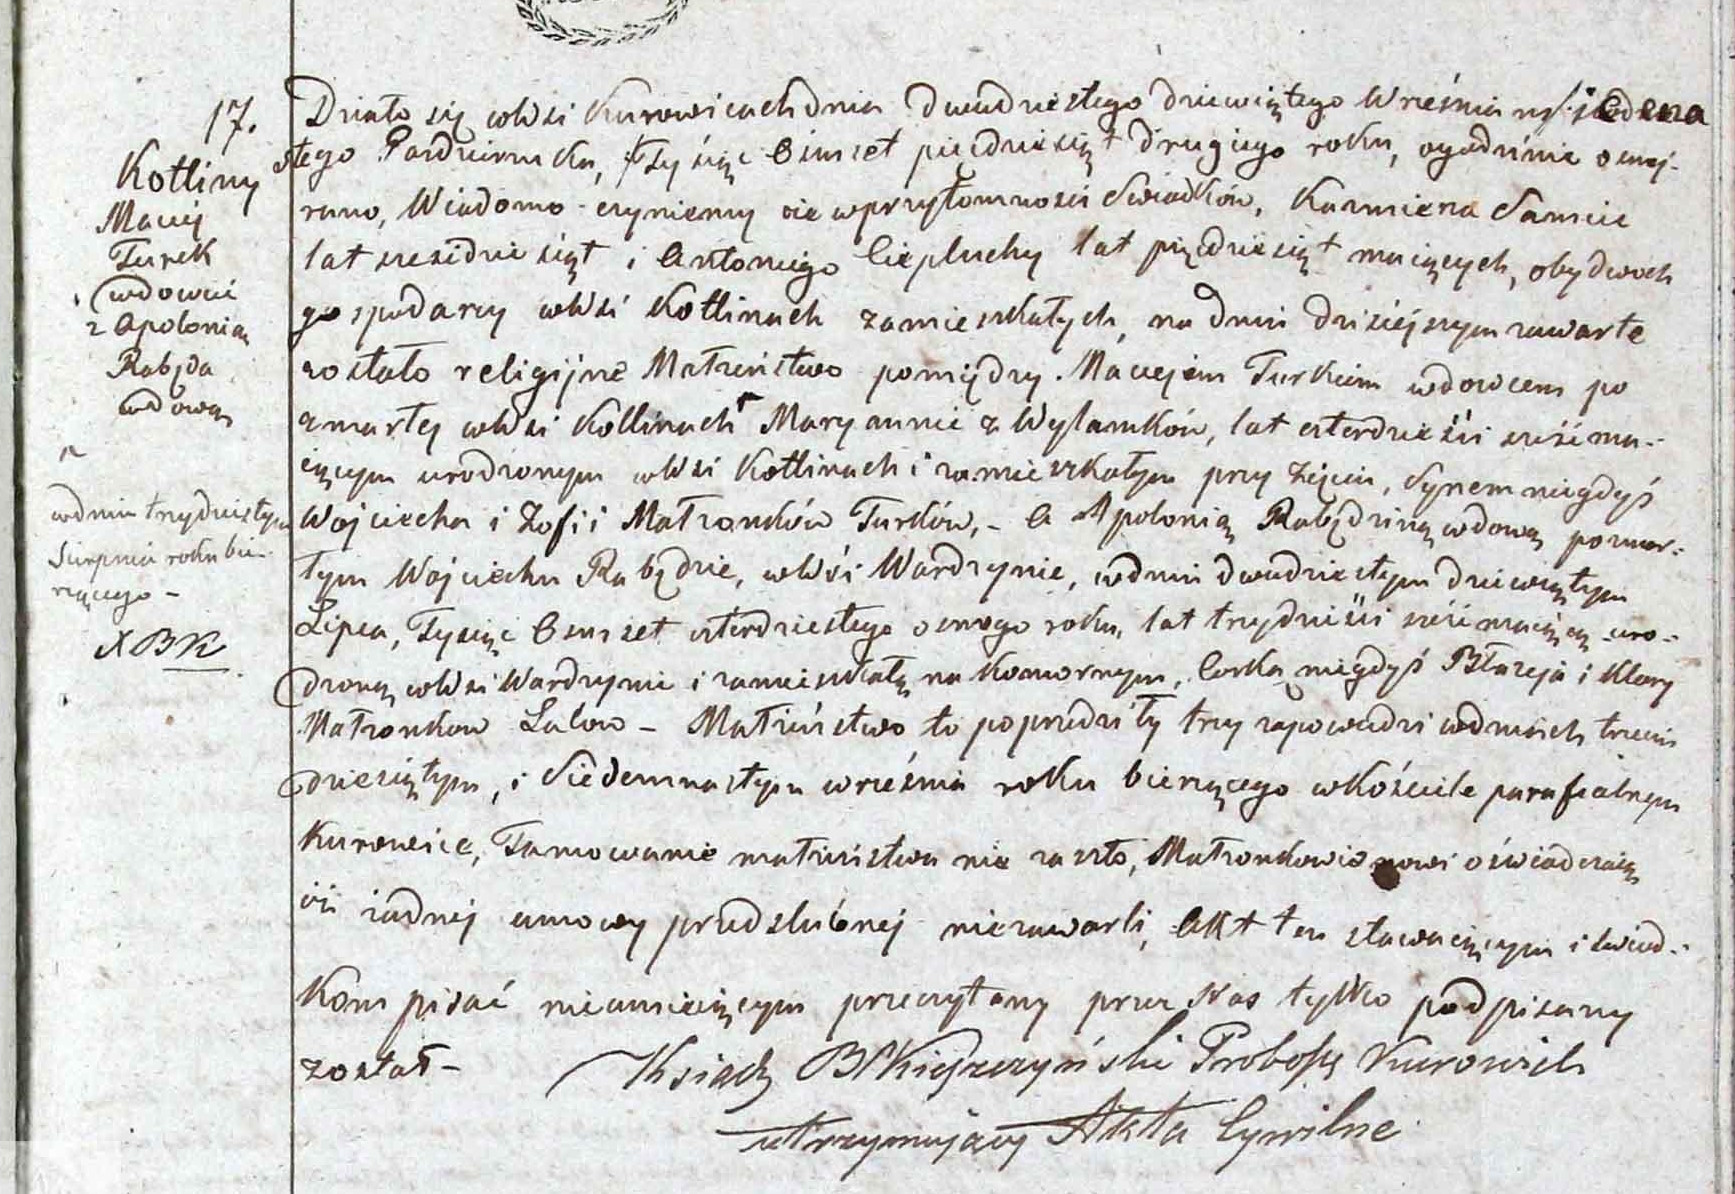 17.
Kotliny
Maciej
Turek
wdowiec
z Apolonią
Rabęda
wdową
w dniu trzydziestym
Sierpnia roku bie-
rzącego -
X B K
Działo się w Wsi Kurowicach dnia dwudziestego dziewiątego Września n/s jedena
stego Październiku, Tysiąc Ośmset pięćdziesiąt drugiego roku, o godzinie osmej-
rano, Wiadomo czyniemy że w przytomności Swiadków, Kazmierza Samcie
lat sześćdziesiąt i Antoniego Ciepluchy lat pięćdziesiąt maiących, obydwóch
gospodarzy w Wsi Kotlinach zamieszkałych, na dniu dzisiejszym zawarte
zostało religijne Małżeństwo pomiędzy Maciejem Turkiem wdowcem po
zmarłej w Wsi Kotlinach Maryannie z Wylamków, lat czterdzieści sześć ma-
iącym urodzonym w Wsi Kotlinach i zamieszkałym przy Zięciu, Synem niegdyś
Wojciecha i Zofii Małzonków Turków, - A Apolonią Rabędziną wdową po zmar-
łym Wojciechu Rabędzie, w Wsi Wardzynie, w dniu dwudziestym dziewiątym
Lipca, Tysiąc Ośmset czterdziestego osmego roku, lat trzydzieści sześć maiącą uro-
dzoną w Wsi Wardzynie i zamieszkałą na Komornym, Corką niegdyś Błażeja i Klary
Małzonkow Lalow - Małżeństwo to poprzedziły trzy zapowiedzi w dniach trzecim
dziesiątym, i Siedemnastym września roku bierzącego w kościele parafialnym
Kurowice, Tamowanie małżeństwa nie zaszło, Małzonkowie nowi oświadczaią
iż żadnej umowy przedslubnej niezawarli, Akt ten stawaiącym i świad-
kom pisać nieumieiącym przeczytany przez Nas tylko podpisany
został -
Ksiądz B Kiędzczyński Proboszcz Kurowich
utrzymujący Akta Cywilne